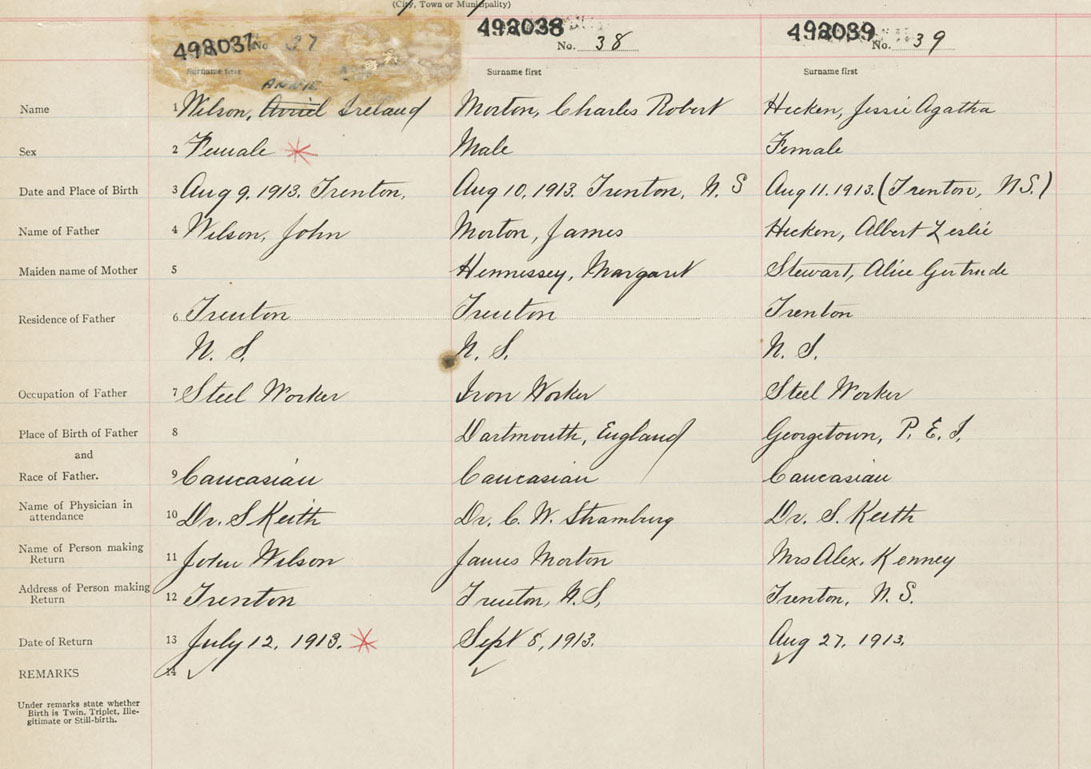 (City, Town or Municipality)
498037 No. 37 498038 No. 38 498039 No. 39
Surname first Surname first Surname first
ANNIE
Name 1 Wilson, Avriel Ireland Morton, Charles Robert Hicken, Jessie Agatha
Sex 2 Female * Male Female
Date and Place of Birth 3 Aug 9, 1913. Trenton, Aug 10, 1913. Trenton, N. S Aug 11. 1913. (Trenton, N.S.)
Name of Father 4 Wilson, John Morton, James Hicken, Albert Leslie
Maiden name of Mother 5 Hennessey, Margaret Stewart, Alice Gertrude
Residence of Father 6 Trenton Trenton Trenton
N. S. N. S. N. S.
Occupation of Father 7 Steel Worker Iron Worker Steel Worker
Place of Birth of Father 8 Dartmouth, England Georgetown, P. E. I.
and
Race of Father. 9 Caucasian Caucasian Caucasian
Name of Physician in attendance 10 Dr. S Keith Dr. C. W. Stramburg Dr. S. Keith
Name of Person making Return 11 John Wilson James Morton Mrs Alex. Kenney
Address of Person making Return 12 Trenton Trenton, N. S. Trenton, N. S.
Date of Return 13 July 12, 1913. * Sept 8, 1913. Aug 27, 1913.
REMARKS 14
Under remarks state whether
Birth is Twin, Triplet, Ille-
gitimate or Still-birth.